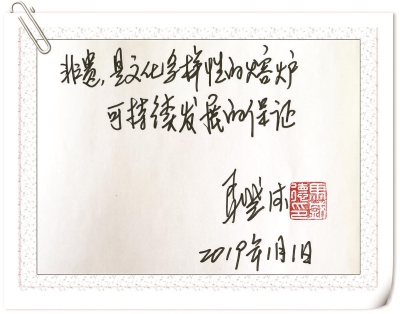 非遗,是文化多样性的熔炉
可持续发展的保证
2019年1月1日